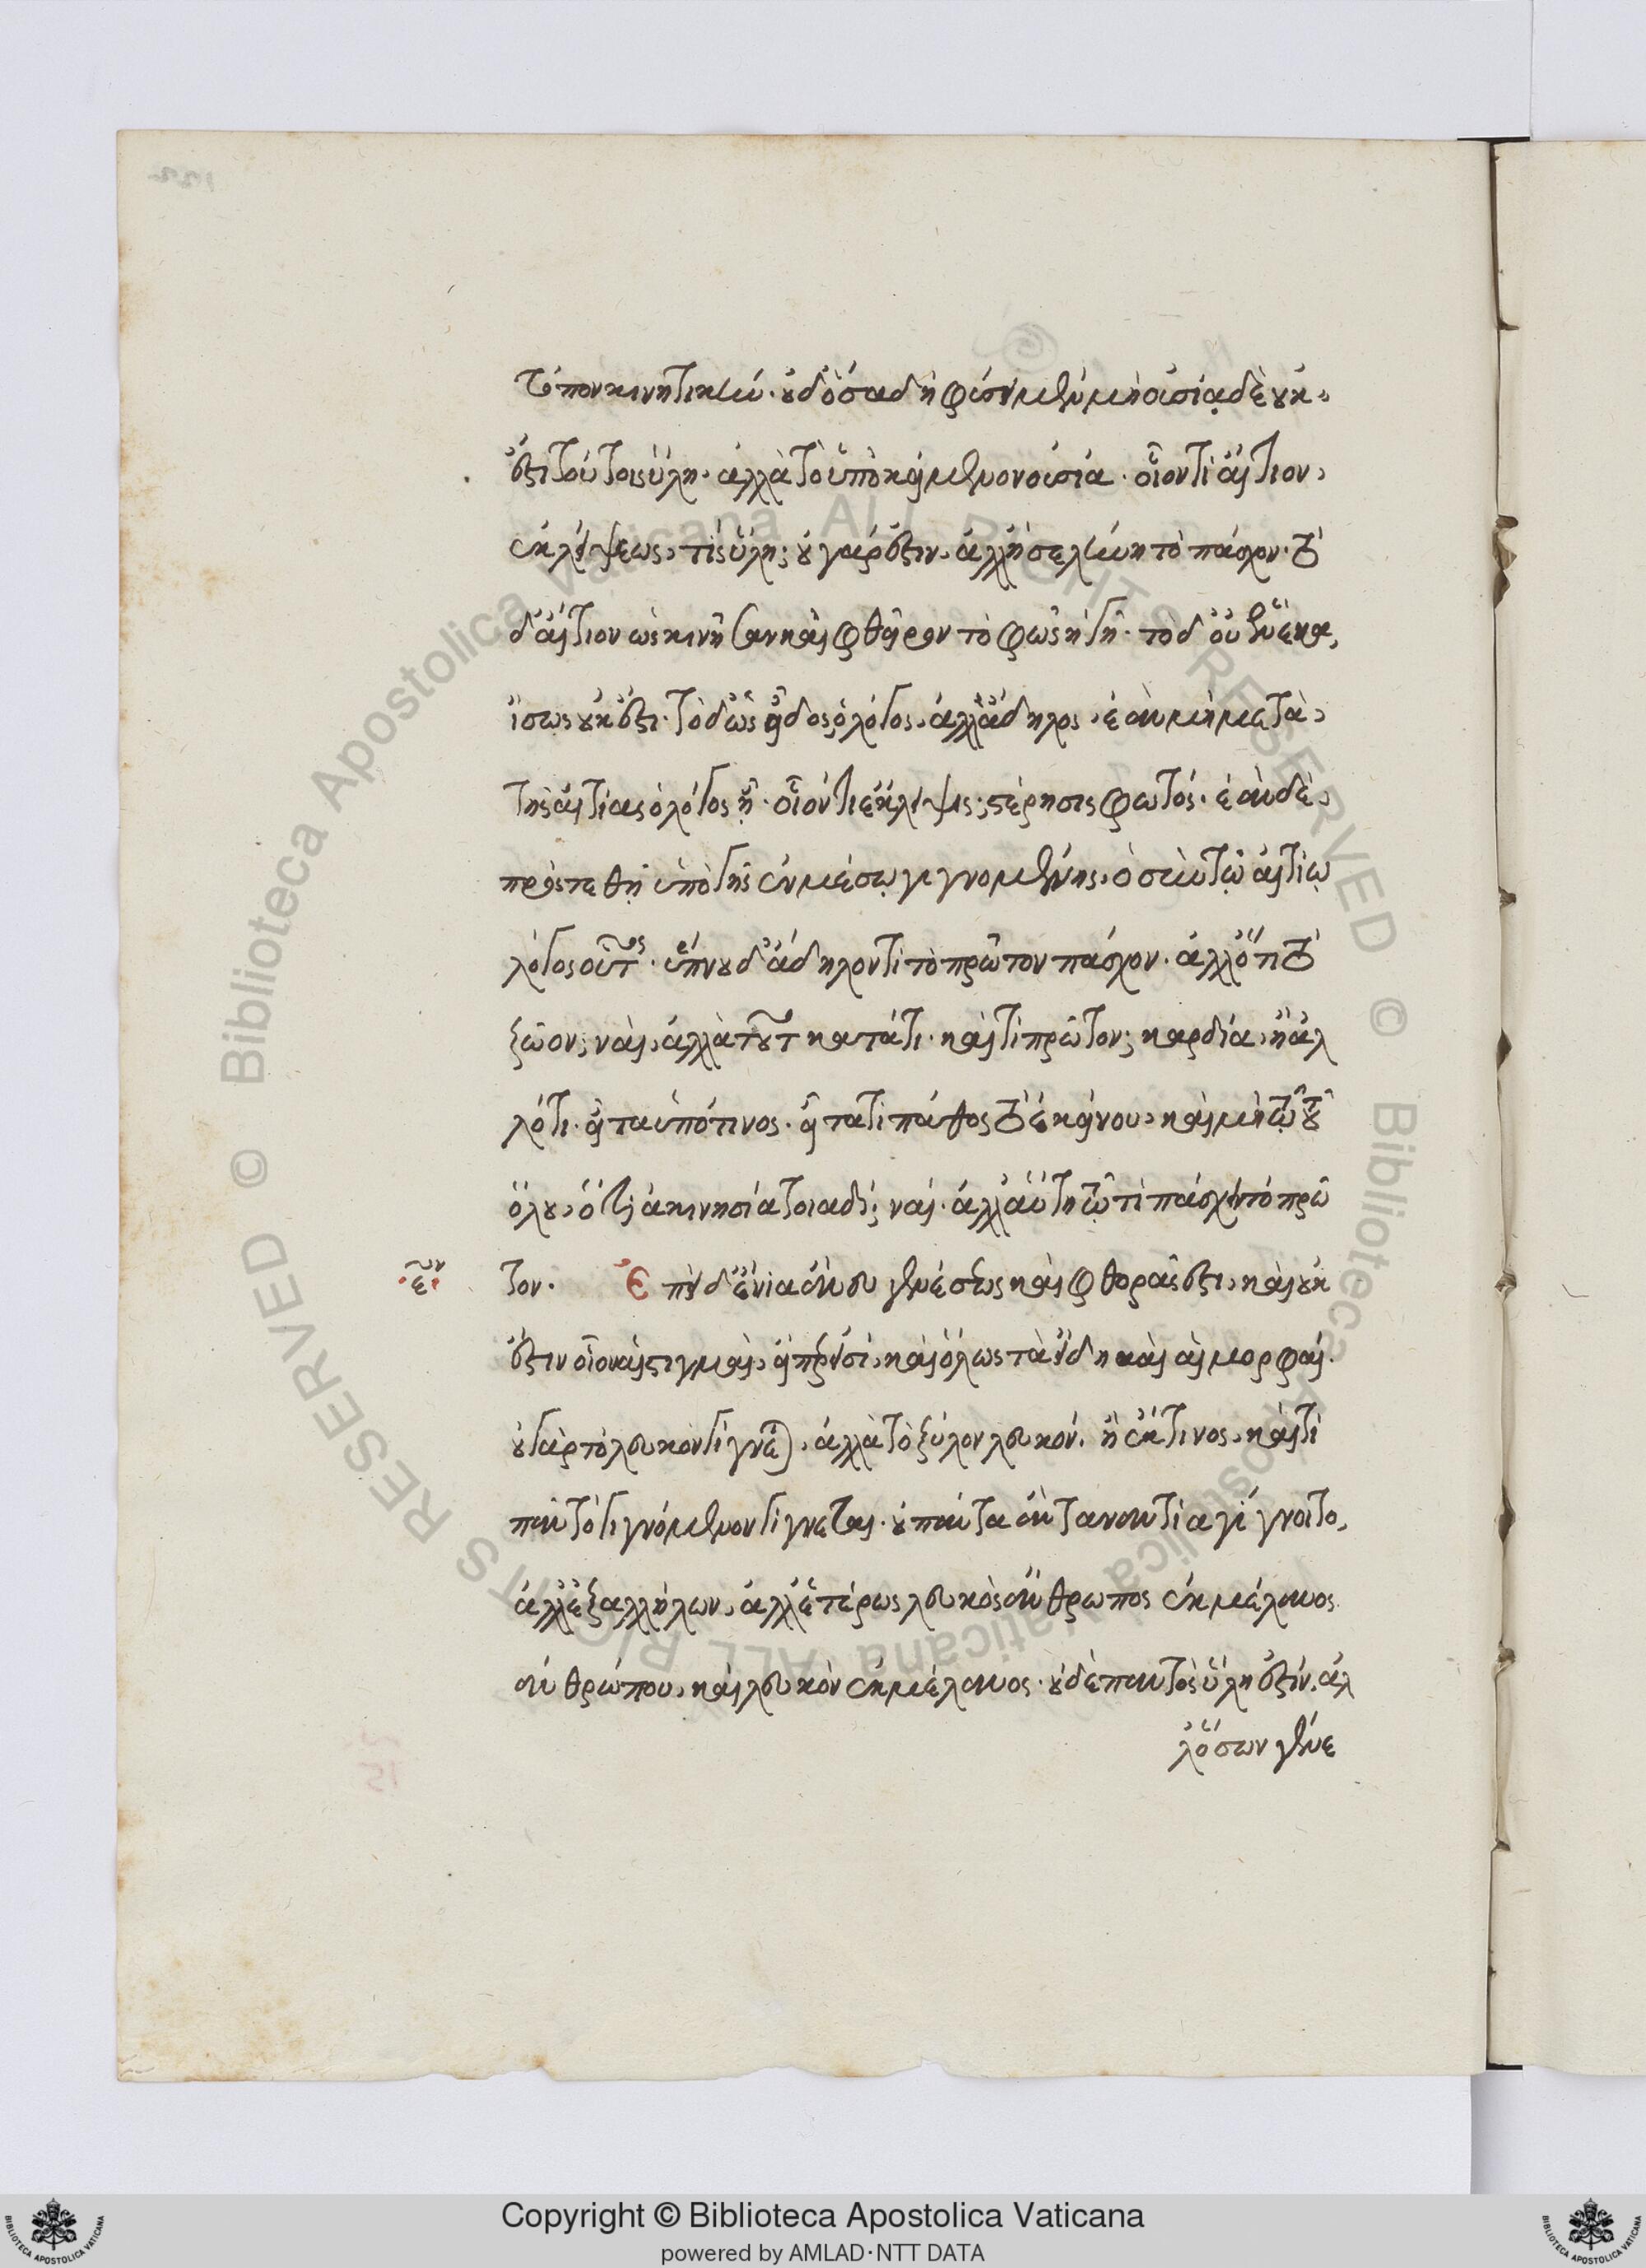 τόπον κινητικήν. οὐδ' ὅσα δὴ φύσει μὲν μὴ οὐσίᾳ δὲ οὐκ
ἔστι τούτοις ὕλη. ἀλλὰ τὸ ὑποκείμενον οὐσία. οἷον τί αἴτιον
ἐκλείψεως, τίς ὕλη; οὐ γάρ ἐστιν, ἀλλ' ἡ σελήνη τὸ πάσχον. τί
δ' αἴτιον ὡς κινῆσαν καὶ φθεῖρον τὸ φῶς ἡ γῆ. τὸ δ' οὗ ἕνεκα,
ἴσως οὐκ ἔστι. τὸ δ' ὡς εἶδος ὁ λόγος, ἀλλὰ ἄδηλος, ἐὰν μὴ μετὰ
τῆς αἰτίας ὁ λόγος ᾖ. οἷον τί ἔκλειψις; στέρησις φωτός. ἐὰν δὲ
προστεθῇ ὑπὸ γῆς ἐν μέσῳ γιγνομένης, ὁ σὺν τῷ αἰτίῳ
λόγος οὗτος. ὕπνου δ' ἄδηλον τί τὸ πρῶτον πάσχον. ἀλλ' ὅτι τὸ
ζῷον; ναί, ἀλλὰ τοῦτο κατὰ τί. καὶ τί πρῶτον; καρδία, ἢ ἄλ
λό τι. εἶτα ὑπό τινος. εἶτα τί πάθος τὸ ἐκείνου, καὶ μὴ τοῦ
ὅλου, ὅτι ἀκινησία τοιαδί; ναί. ἀλλ' αὕτη τῷ τί πάσχειν τὸ πρῶ
τον. Ἐπεὶ δ' ἔνια ἄνευ γενέσεως καὶ φθορᾶς ἔστι, καὶ οὐκ
ἔστιν οἷον αἱ στιγμαί, εἴπερ εἰσί, καὶ ὅλως τὰ εἴδη καὶ αἱ μορφαί.
οὐ γὰρ τὸ λευκὸν γίγνεται, ἀλλὰ τὸ ξύλον λευκόν. ἢ ἔκ τινος, καὶ τί
πᾶν τὸ γιγνόμενον γίγνεται. οὐ πάντα ἂν τἀναντία γίγνοιτο,
ἀλλ' ἐξ ἀλλήλων, ἀλλ' ἑτέρως λευκὸς ἄνθρωπος ἐκ μέλανος
ἀνθρώπου, καὶ λευκὸν ἐκ μέλανος. οὐδὲ παντὸς ὕλη ἐστίν. ἀλ
λ' ὅσων γένε